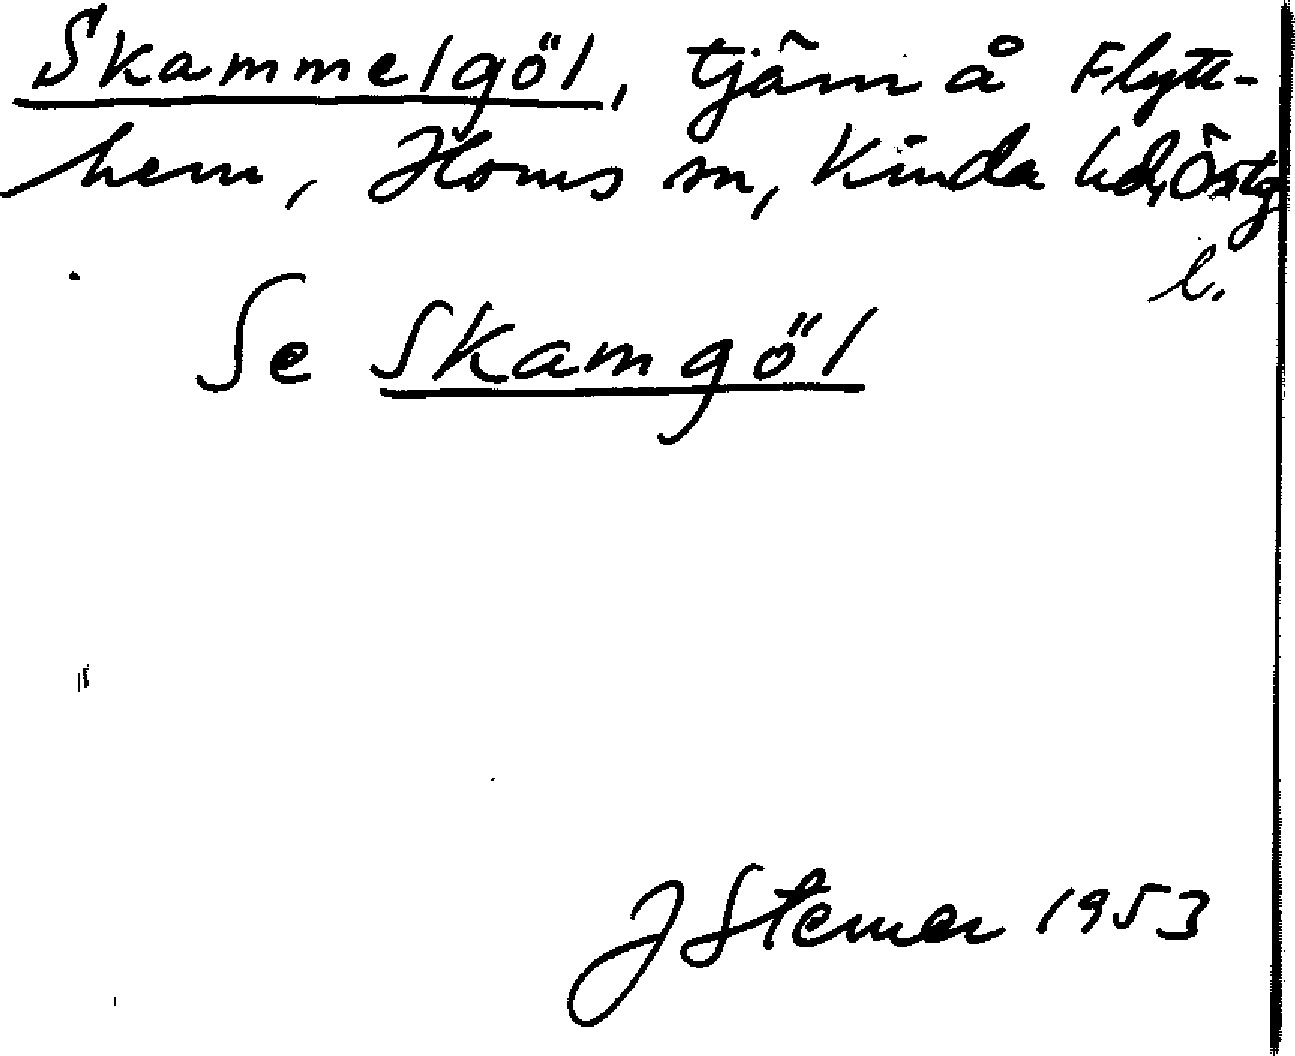 Skammelgöl, tjärn å Flytt-
hem, Horns sn, Kinda hd, Östg
l.
Se Skamgöl
J Sterner 1953